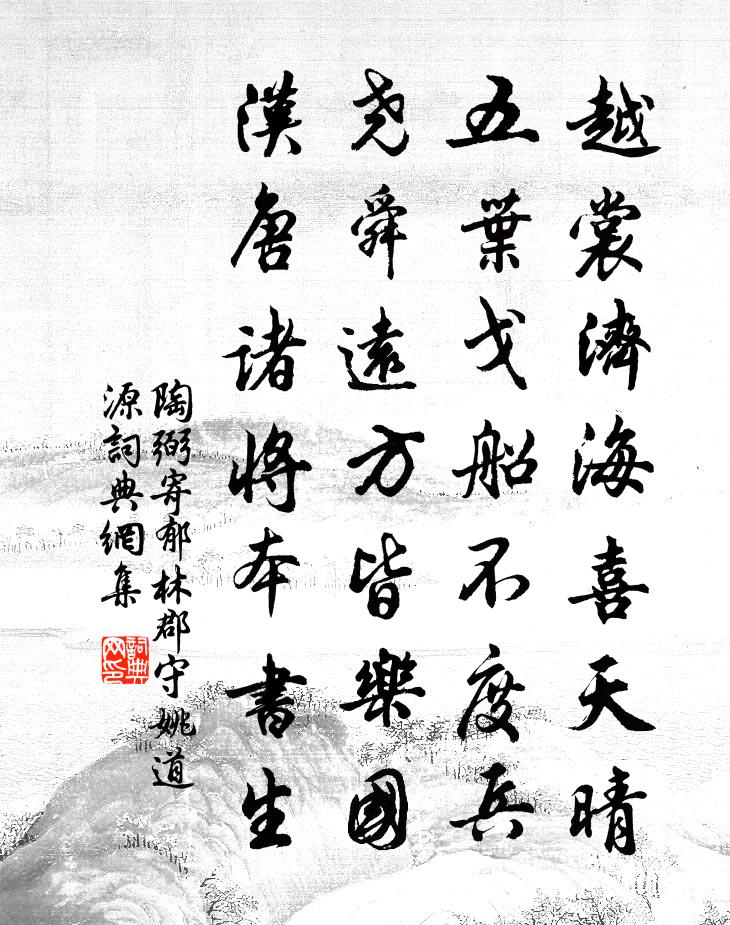 越裳濟海喜天晴
五葉戈船不度兵
堯舜遠方皆樂國
漢唐諸將本書生
陶弼寄郁林郡守姚道
源詞典網集
詞典
网印